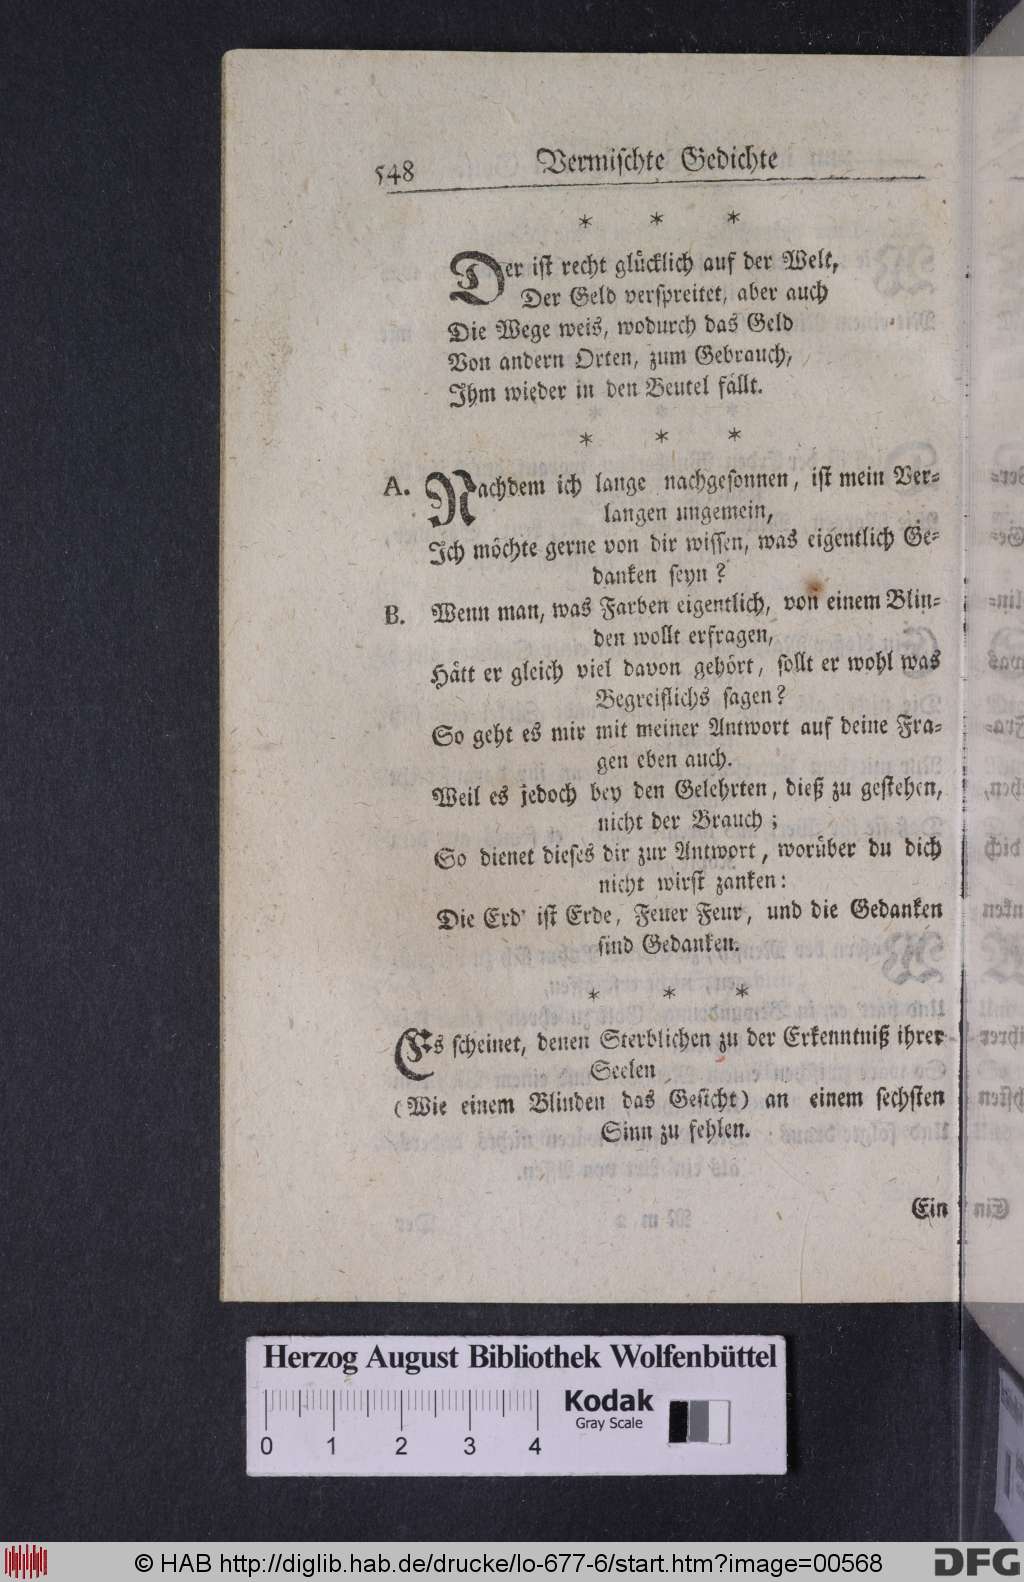 548 Vermischte Gedichte
* * *
Der ist recht glücklich auf der Welt,
Der Geld verspreitet, aber auch
Die Wege weis, wodurch das Geld
Von andern Orten, zum Gebrauch,
Ihm wieder in den Beutel fällt.
* * *
A. Nachdem ich lange nachgesonnen, ist mein Ver-
langen ungemein,
Ich möchte gerne von dir wissen, was eigentlich Ge-
danken seyn?
B. Wenn man, was Farben eigentlich, von einem Blin-
den wollt erfragen,
Hätt er gleich viel davon gehört, sollt er wohl was
Begreiflichs sagen?
So geht es mir mit meiner Antwort auf deine Fra-
gen eben auch.
Weil es jedoch bey den Gelehrten, dieß zu gestehen,
nicht der Brauch;
So dienet dieses dir zur Antwort, worüber du dich
nicht wirst zanken:
Die Erd' ist Erde, Feuer Feur, und die Gedanken
sind Gedanken.
* * *
Es scheinet, denen Sterblichen zu der Erkenntniß ihrer
Seelen
(Wie einem Blinden das Gesicht) an einem sechsten
Sinn zu fehlen.
Ein
Herzog August Bibliothek Wolfenbüttel
Kodak
Gray Scale
0 1 2 3 4
© HAB http://diglib.hab.de/drucke/lo-677-6/start.htm?image=00568
DFG